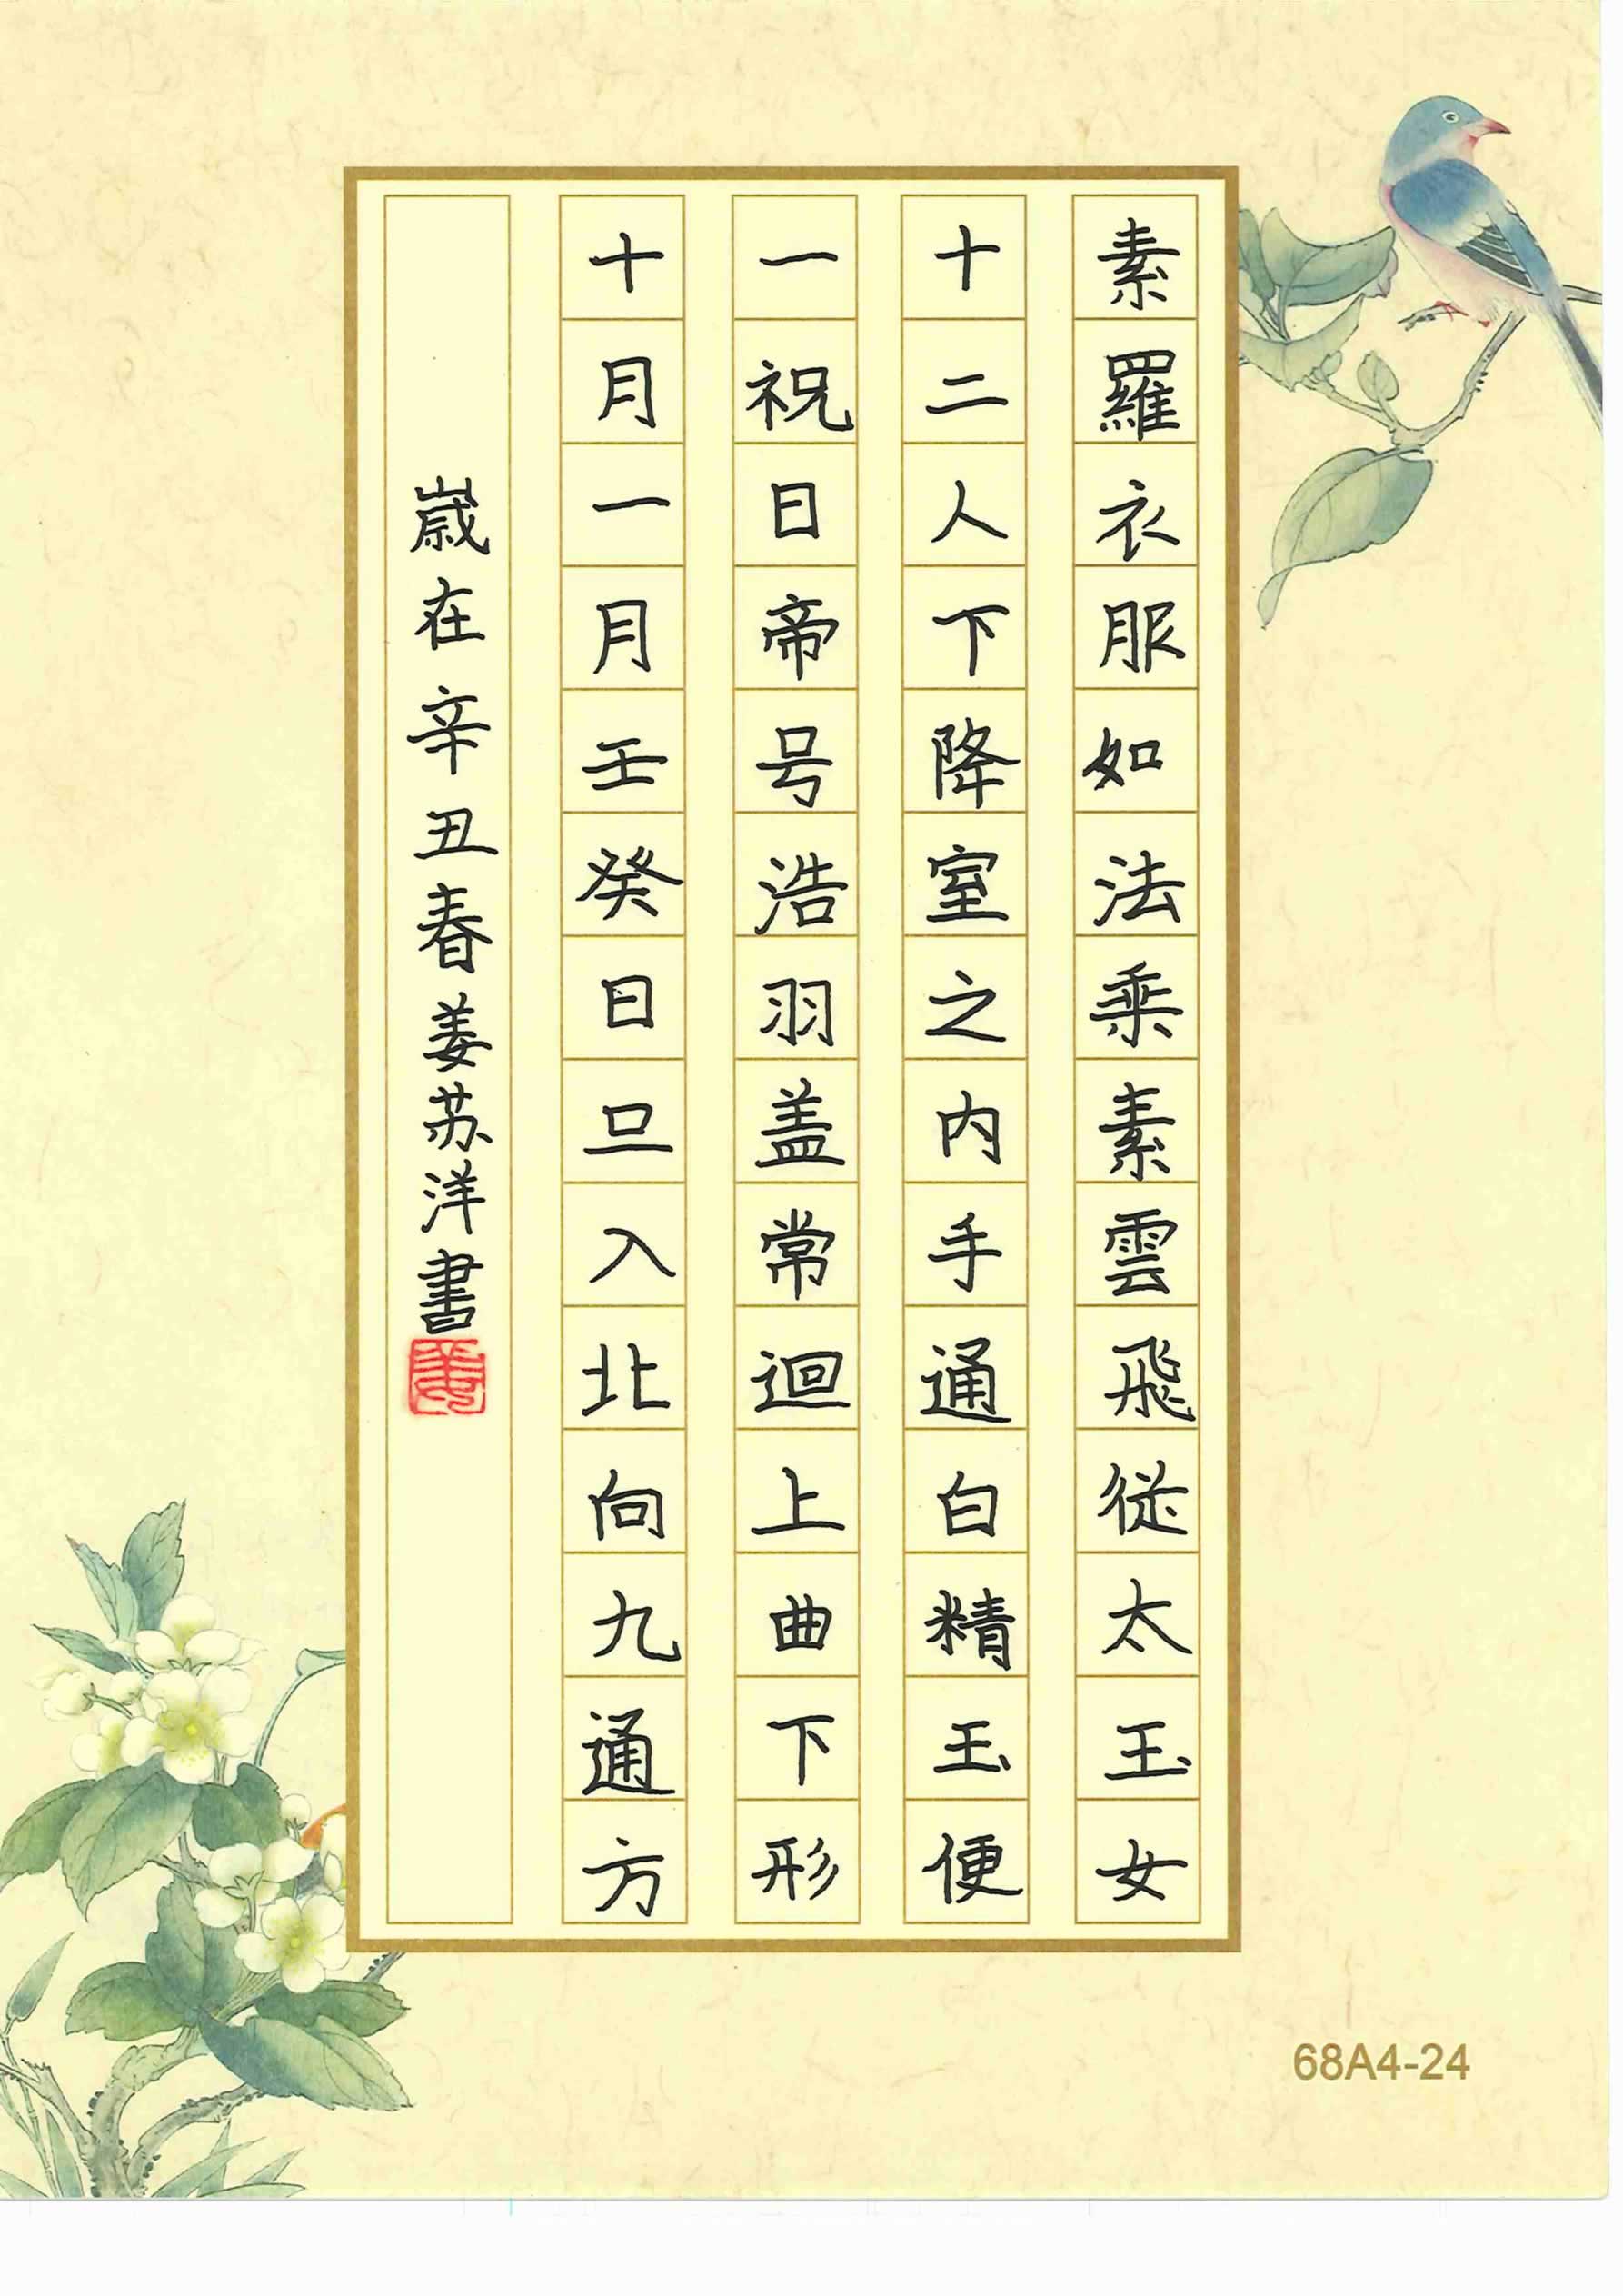 素羅衣服如法乘素雲飛從太玉女
十二人下降室之內手通白精玉便
一祝日帝号浩羽盖常迴上曲下形
十月一月壬癸日旦入北向九通方
歲在辛丑春姜苏洋書
68A4-24